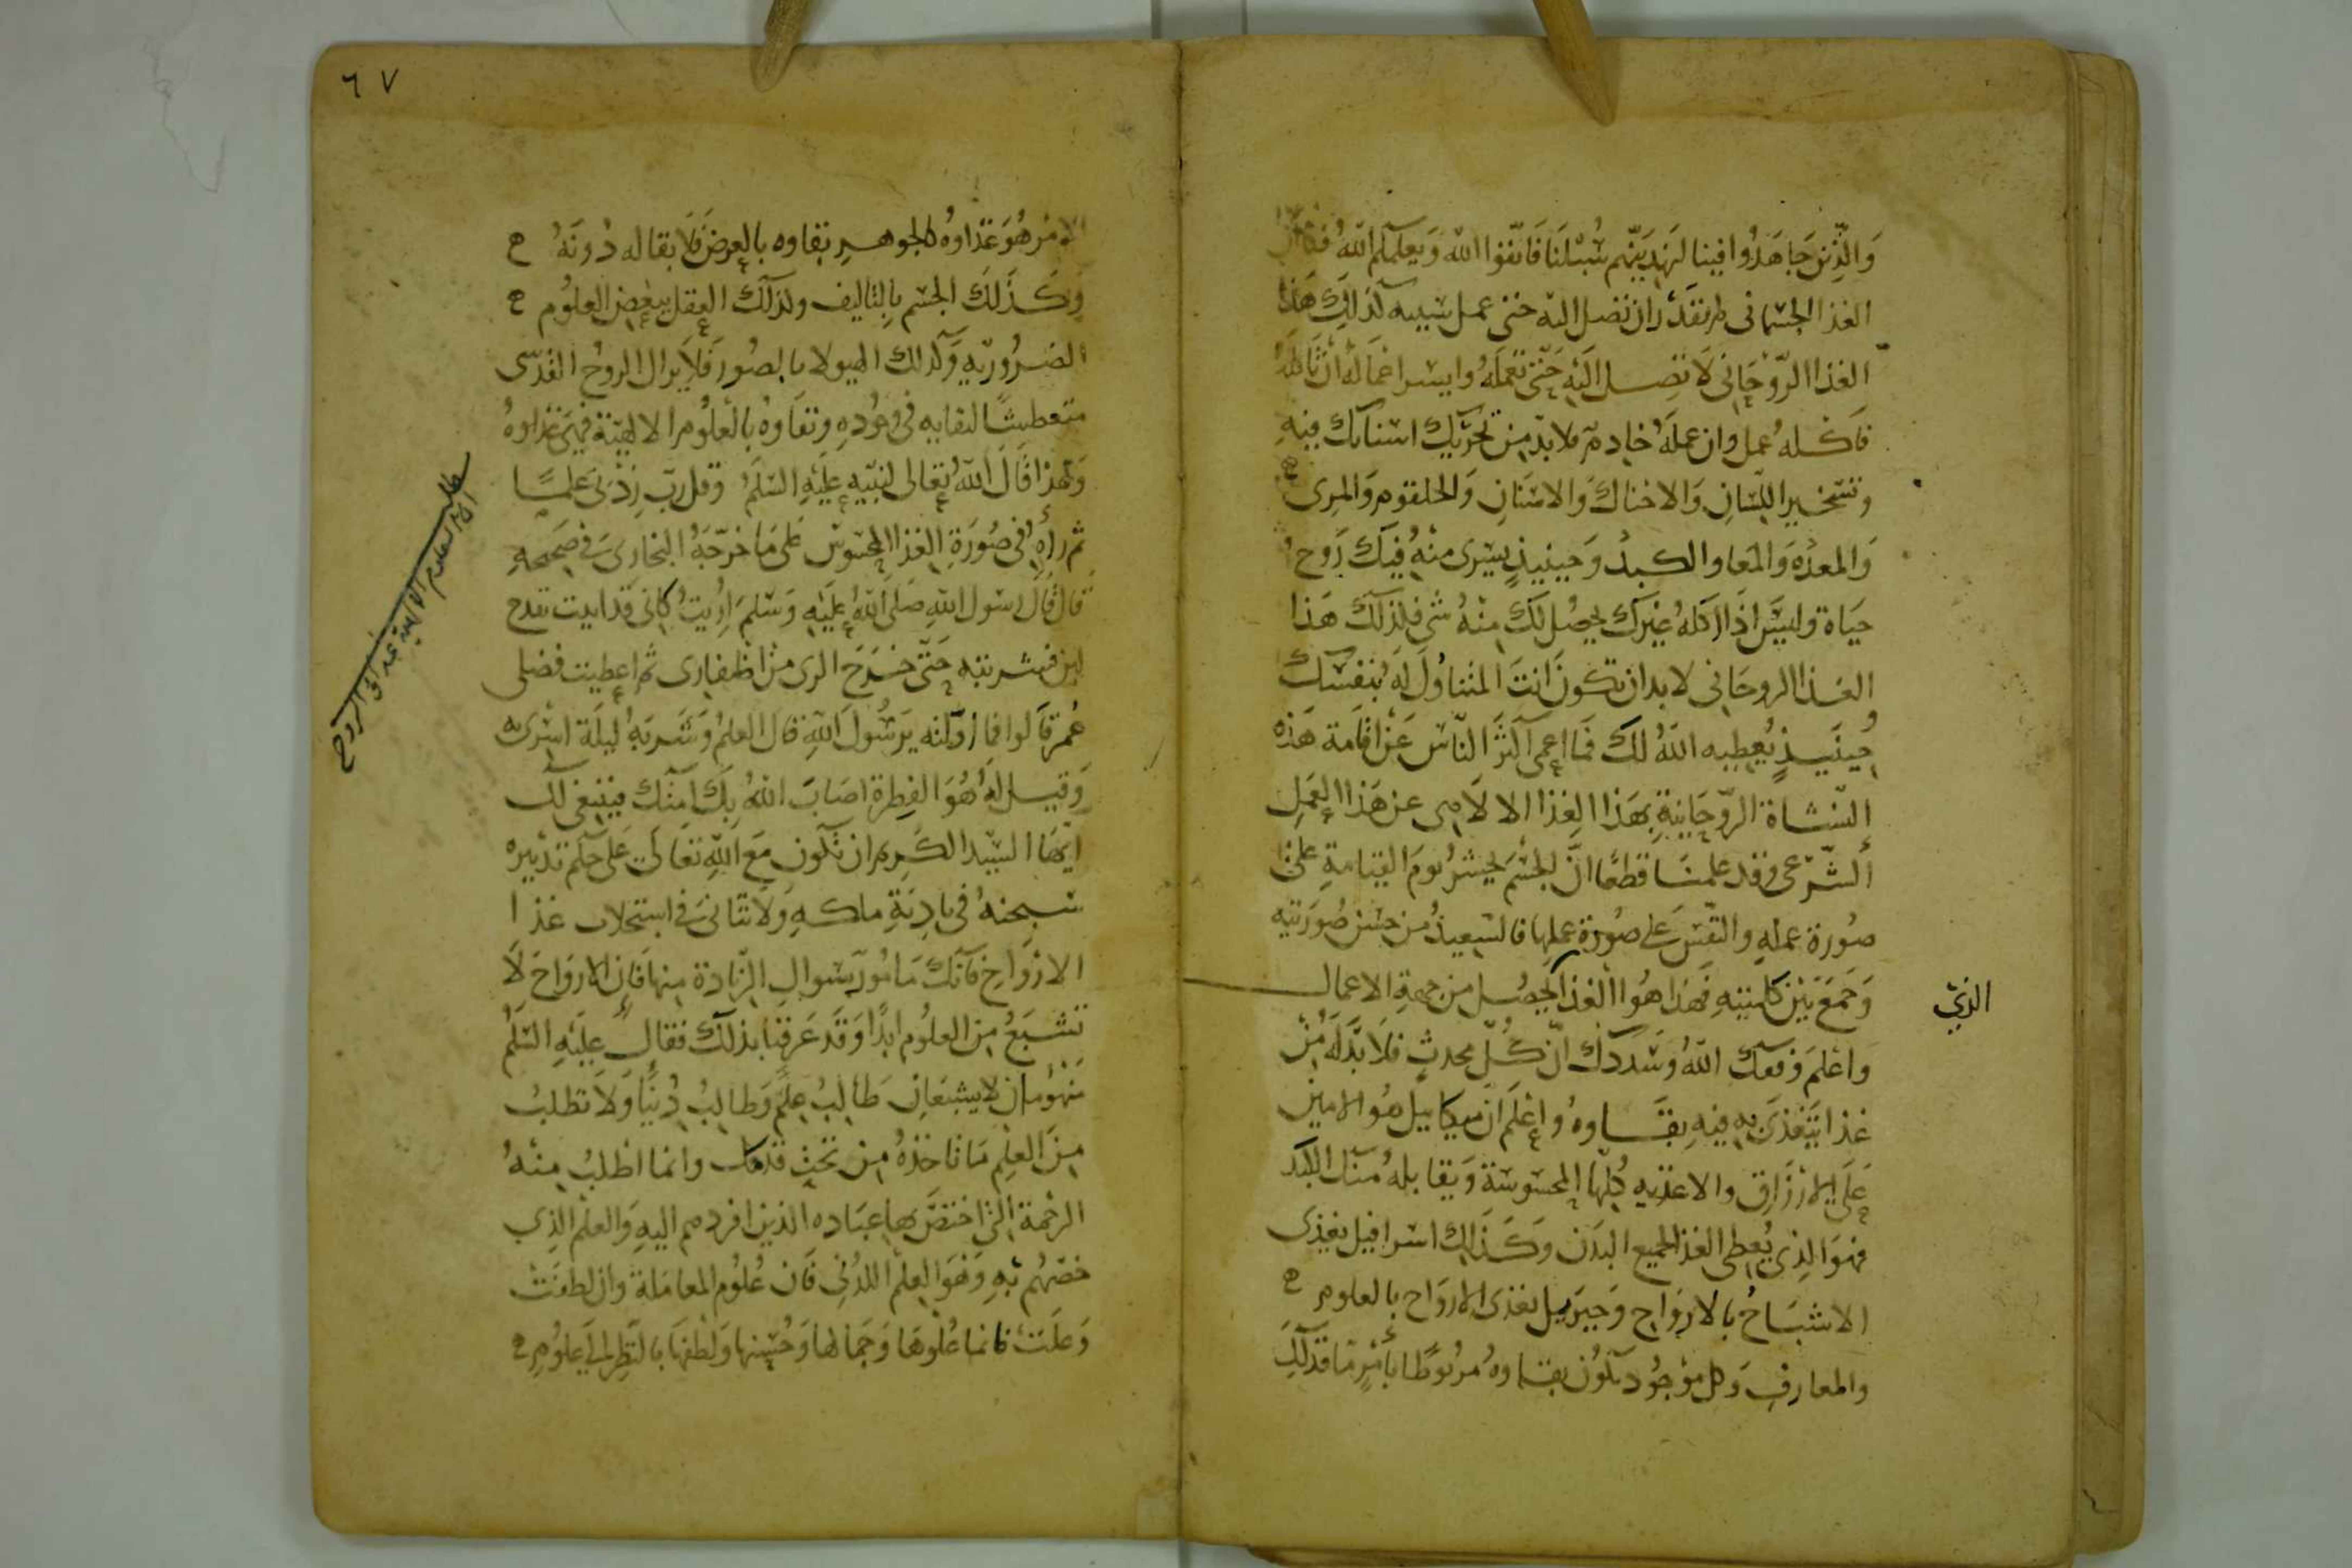 وَالَّذِينَ جَاهَدُوا فينا لَنَهدِيَنّهم سُبُلَنَا فَاتّقوا اللّه وَيعلمكم اللّهُ فكما ان
الغذا الجسمانى لم تقدر ان تصل اليه حتى عمل سببه كذلِك هَذا
الغذا الرّوحَانى لَا تصل اليَهِ حَتّى تعمَلَهُ وايسر اعمَالهُ ان
فاكله عمل وان عملَهُ خادم فلا بدّ من تحريك اسنانك فيهِ
وتسخير اللّسَان وَالاحناك وَالاسنَان وَالحلقوم وَالمرى
وَالمعدَه وَالمَعا والكبد وَحينيذٍ يسَرى منهُ فيك رَوح
حيَاة وليسَ اذَا اكلهُ غيرَك يحصُل لَكَ منهُ شى فلذلك هَذا
الغذا الروحَانى لا بد ان تكون انتَ المتناوُل لَهَ بنفسك
حِينَيذٍ يُعطيه اللّهُ لك فما اعمى اكثرَ النّاس عَن اقامَة هَذه
النّشاة الرّوحَانيةِ بهَذا الغذا الا لامى عن هَذا العَمل
الشّرعى وقد علمنَا قطعًا انّ الجسمَ يحشر يومَ القيامةِ على
صُورة عمله والنّفس على صورَة عملها فالسَعيدُ من حسُن صورَتيه
وَجمَعَ بَيْن كلمتيهِ فهَذا هُوَ الغذا يحصُل من جهةِ الاعمال
الذيْ
وَاعلم وفقك اللّهُ وَسَددك انّ كُلّ محدثٍ فلَا بدَّ لَه مِن
غذا يَتغذى به فيهِ بقَاوهُ واعلَم انّ ميكاييل هُو الامين
عَلَى الارزَاق والاغذيه كلّها المحسُوسَة وَيقابلهُ منك الكبد
فهوَ الذِى يُعطى الغذا لجميع البدَن وَكذَلك اسرافيل يغذى
الاشبَاحُ بالارواح وَجبرَيل يغذى الارَواح بالعلوم
والمعارفِ وَكل موجُود يكُون بقاوهُ مربُوطًا بأمرٍ مَا فذلك
٦٧
الامرُ هُوَ غذَاوهُ كالجوهر بقاوه بالعرض فَلَا بقا له دُونَهُ
وكَذلك الجسْم بالتاليف وكذلك العقل ببعض العلُوم
الضرُوريّهِ وَكذلك الهيولا بالصُور فَلَا يزال الروحُ القُدسى
متعطشًا لبقايه فى وجُودهِ وبقاوهُ بالعُلوم الالهيّة فهى غذاوهُ
وَلهذا قال اللّهُ تعَالى لنبيّهِ عليَهِ السّلَمُ وَقل ربّ زدنى علمًا
ثم رأه فى صُورَةِ الغذا المحسُوس عَلى مَا خرّجَهُ البخارىَ فى صَحيحهِ
قال قال رسول اللّهِ صَلى اللّهُ عليَهِ وَسَلم اُريتُ كانى قد اتيت بقدح
لبن فشربته حَتّى خرَجَ الرى من اظفارى ثم اعطيت فضلى
عُمر قالوا فما اوّلته يَرسُولَ اللّهِ قال العلمُ وَشَربَهُ ليلَة اسرى به
وَقيل لَهُ هُوَ الفِطرة اصَابَ اللّهُ بكَ امّتك فينبغى لك
ايّهَا السّيد الكريم ان تكون مَعَ اللّهِ تعَالىَ على حكم تدبيره
سبحنهُ فى بادِيَةِ ملكهِ وَلَا تتأنىَ فى استجلاب غذا
الارْواح فانك مَامُور بسوال الزّيادة منها فان الارَواحَ لَا
تشبَعُ من العلُوم ابدًا وَقد عَرفنا بذلك فقال عليَهِ السّلمُ
مَنهُومان لا يشبعَان طَالبُ علم وَطالبُ دُنيا وَلَا تطلبُ
من العلم مَا تاخذهُ من تحتِ قدمك وانما اطلبُ منهُ
الرحمة التى اختصَّ بها عبَاده الذين افردهم اليهِ وَالعلم الذِى
خصّهُم بهِ وَهوَ العلم اللدُنى فان عُلوُم المعامَلة وان لطفَتْ
وَعلَت فانما عُلُوهَا وَجَمالها وَحُسنها وَلطفهَا بالنّظر الى عَلوم
مطلب
العلوم الالهية غذا الروح